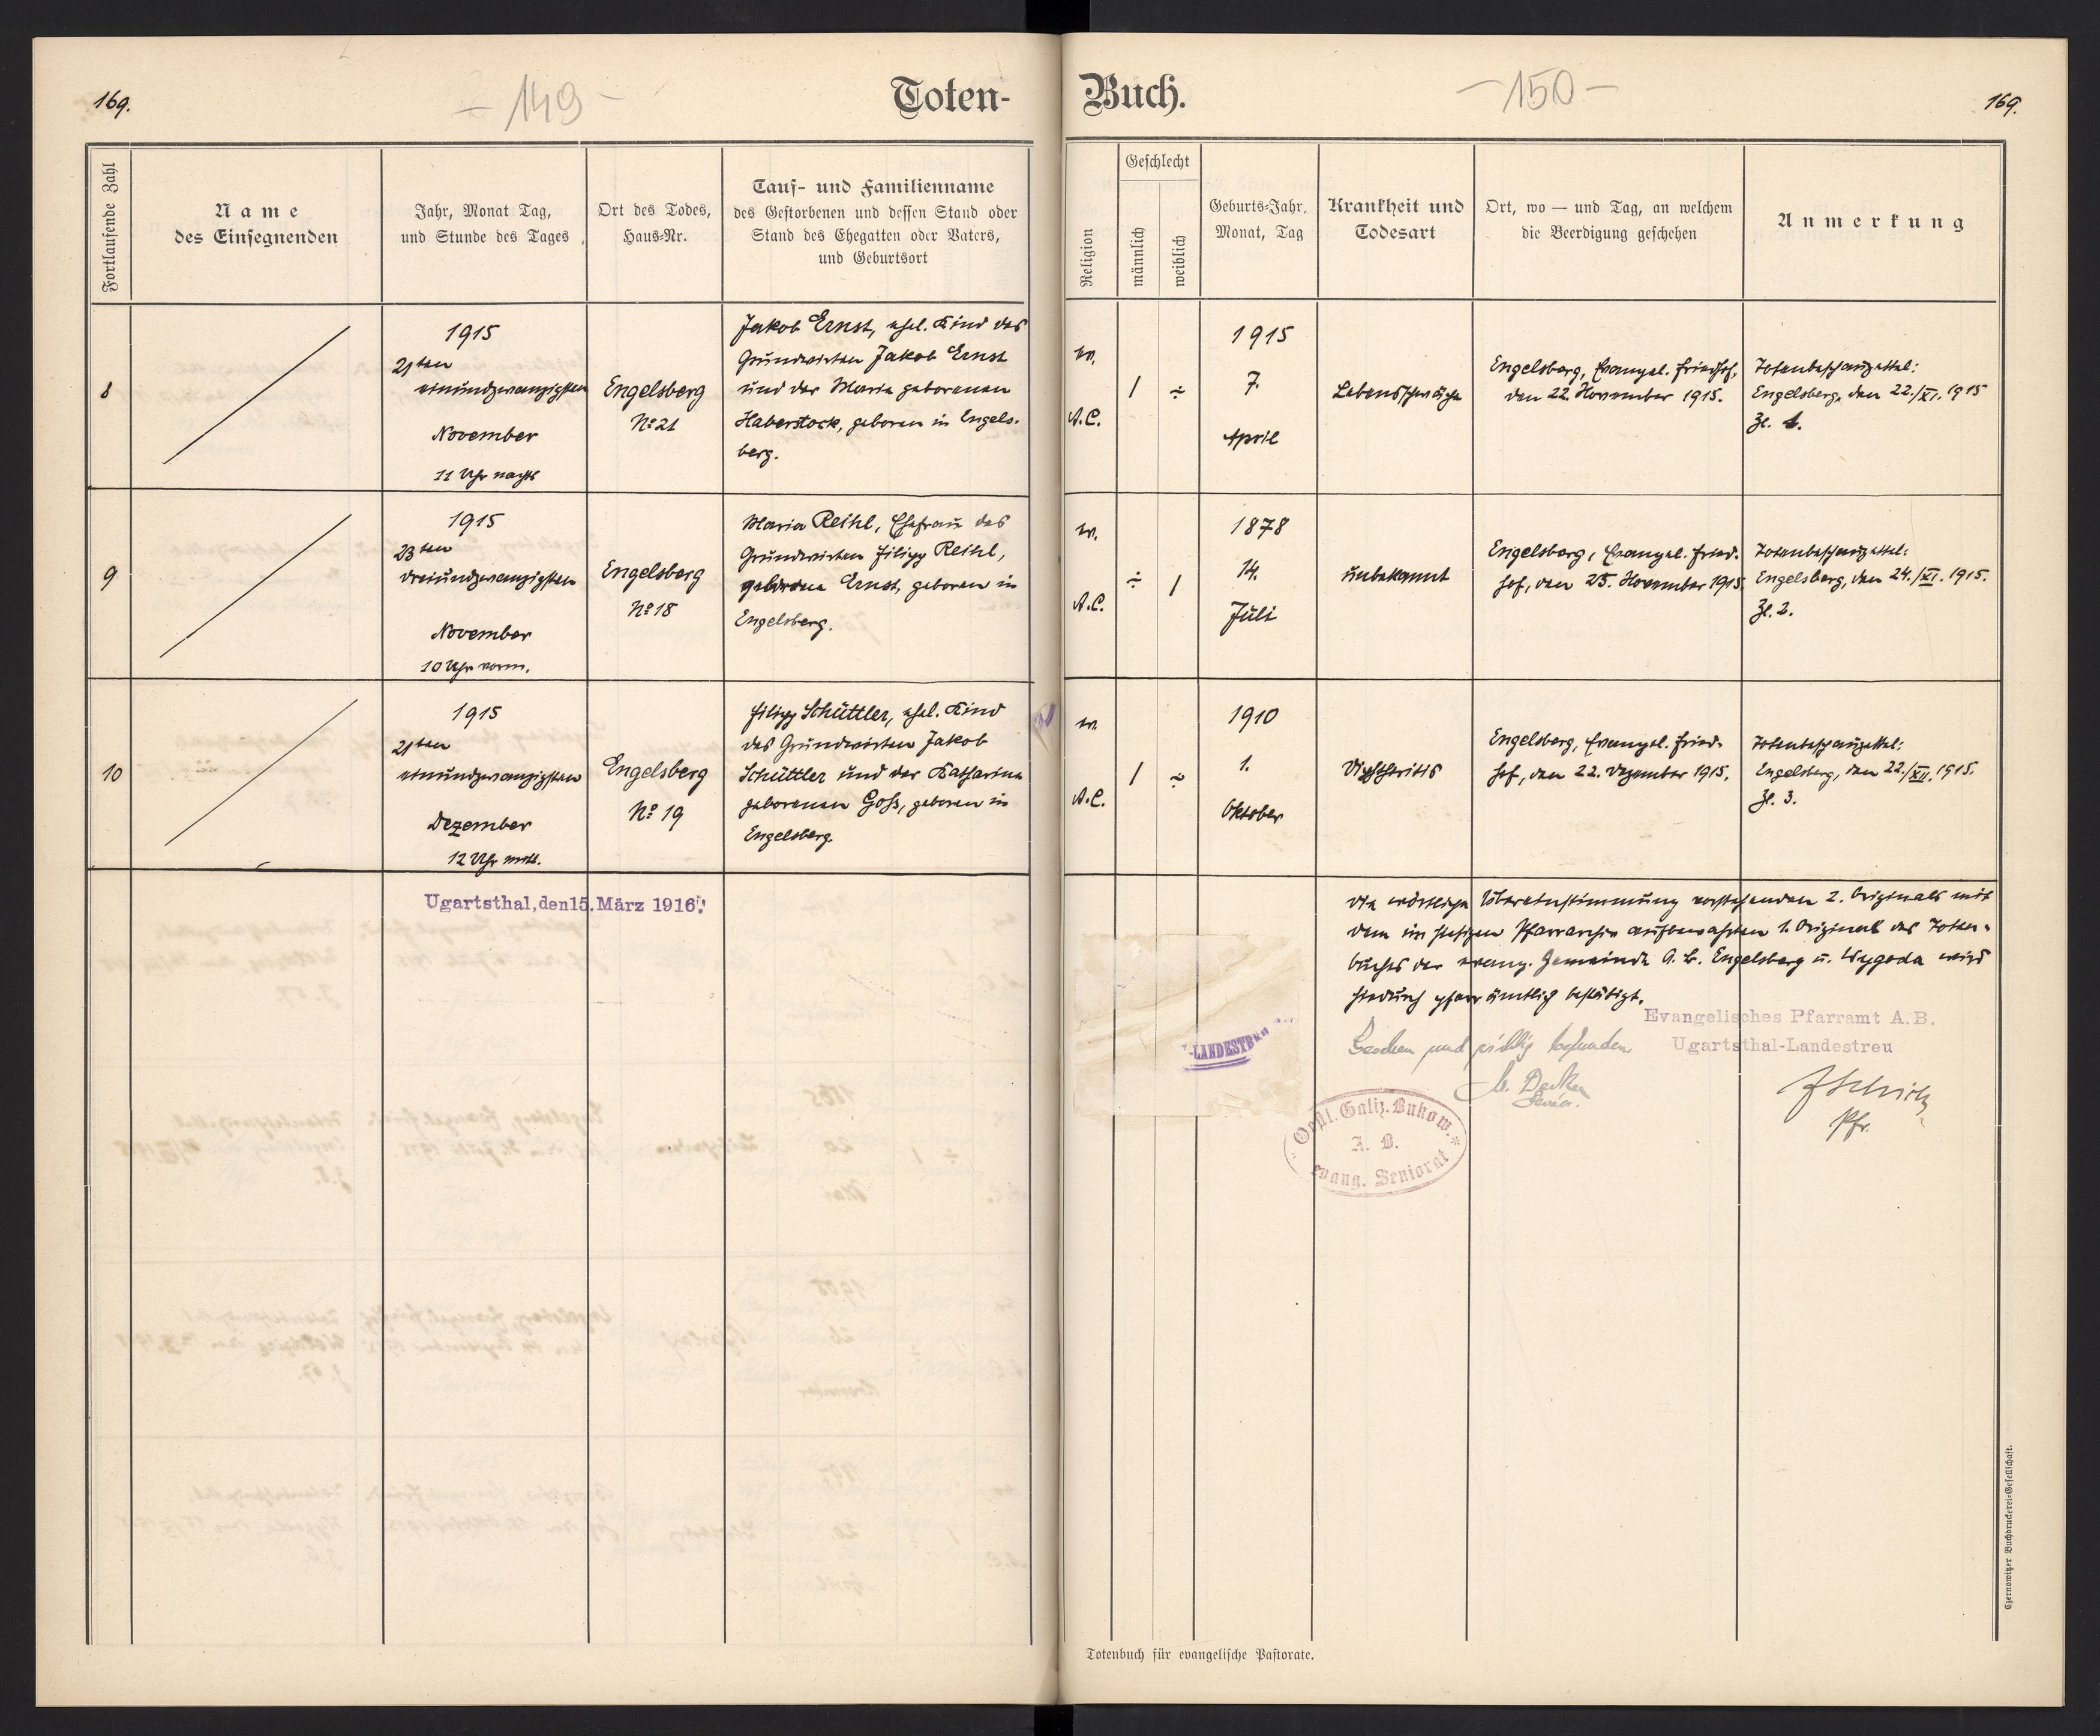 169.
- 149 -
Toten-
Fortlaufende Zahl
Name
des Einsegnenden
Jahr, Monat Tag,
und Stunde des Tages
Ort des Todes,
Haus-Nr.
Tauf- und Familienname
des Gestorbenen und dessen Stand oder
Stand des Ehegatten oder Vaters,
und Geburtsort
8
1915
21ten
einundzwanzigsten
November
11 Uhr nachts
Engelsberg
No 21
Jakob Ernst, ehel. Kind des
Grundwirten Jakob Ernst
und der Maria geborenen
Haberstock, geboren in Engels-
berg.
9
1915
23ten
dreiundzwanzigsten
November
10 Uhr vorm.
Engelsberg
No 18
Maria Reihl, Ehefrau des
Grundwirten Filipp Reihl,
geborene Ernst, geboren in
Engelsberg.
10
1915
21ten
einundzwanzigsten
Dezember
12 Uhr mitt.
Engelsberg
No 19
Filipp Schüttler, ehel. Kind
des Grundwirten Jakob
Schüttler und der Katharina
geborenen Goß, geboren in
Engelsberg.
Ugartsthal, den 15. März 1916.
Buch.
- 150 -
169.
Religion
Geschlecht
männlich
weiblich
Geburts-Jahr,
Monat, Tag
Krankheit und
Todesart
Ort, wo — und Tag, an welchem
die Beerdigung geschehen
Anmerkung
ev.
A.C.
/
÷
1915
7.
April
Lebensschwäche
Engelsberg, Evangel. Friedhof,
den 22. November 1915.
Totenbeschauzettel:
Engelsberg, den 22./XI. 1915
Zl. 1.
ev.
A.C.
÷
/
1878
14.
Juli
unbekannt
Engelsberg, Evangel. Fried-
hof, den 25. November 1915.
Totenbeschauzettel:
Engelsberg, den 24./XI. 1915.
Zl. 2.
ev.
A.C.
/
÷
1910
1.
Oktober
Diphtheritis
Engelsberg, Evangel. Fried-
hof, den 22. Dezember 1915.
Totenbeschauzettel:
Engelsberg, den 22./XII. 1915.
Zl. 3.
Die wörtliche Übereinstimmung vorstehenden 2. Originals mit
dem im hiesigen Pfarrarchiv aufbewahrten 1. Original des Toten-
buches der evang. Gemeinde A. B. Engelsberg u. Wygoda wird
hiedurch pfarrämtlich bestätigt.
Evangelisches Pfarramt A.B.
Ugartsthal-Landestreu
Gesehen und richtig befunden
Senior.
Pfr.
-LANDESTREU
Galiz. Bukow.
A. B.
evang. Seniorat
Totenbuch für evangelische Pastorate.
Czernowitzer Buchdruckerei-Gesellschaft.